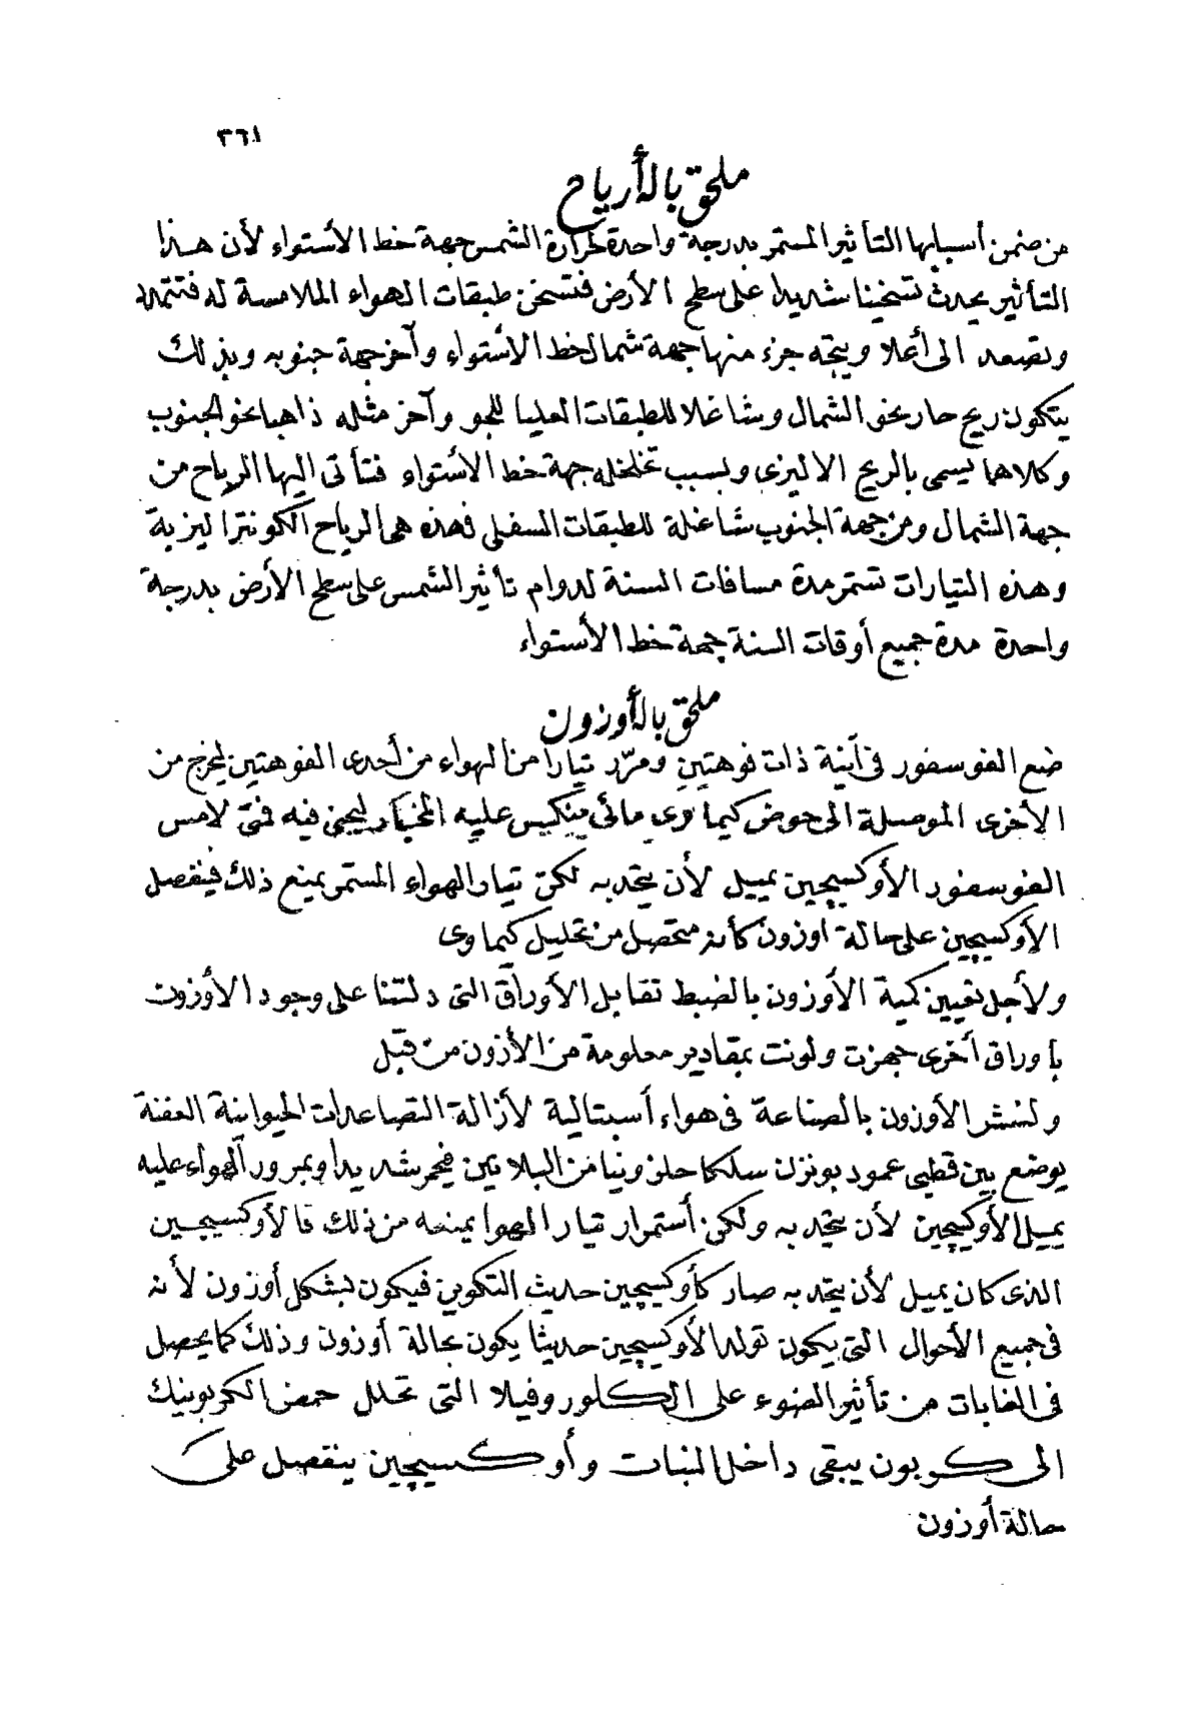 ٣٦١
ملحق بالأرياح
من ضمن أسبابها التأثير المستمر بدرجة واحدة لحرارة الشمس جهة خط الأستواء لأن هذا
التأثير يحدث تسخينا شديدا على سطح الأرض فتسخن طبقات الهواء الملامسة له فتتمدد
وتصعد الى أعلا ويتجه جزء منها جهة شمال خط الأستواء وآخر جهة جنوبه وبذلك
يتكون ريح حار نحو الشمال وشاغلا للطبقات العليا للجو وآخر مثله ذاهبا نحو الجنوب
وكلاهما يسمى بالريح الاليزى وبسبب تخلخله جهة خط الأستواء فتأتى اليها الرياح من
جهة الشمال ومن جهة الجنوب شاغلة للطبقات السفلى فهذه هى الرياح الكونترا ليزية
وهذه التيارات تستمر مدة مسافات السنة لدوام تأثير الشمس على سطح الأرض بدرجة
واحدة مدة جميع أوقات السنة جهة خط الأستواء
ملحق بالأوزون
ضع الفوسفور فى آنية ذات فوهتين ومرّر تيارا من الهواء من أحدى الفوهتين ليخرج من
الأخرى الموصلة الى حوض كيماوى مائى ينكس عليه المخبار ليجنى فيه فمتى لامس
الفوسفور الأوكسيجين يميل لأن يتحد به لكن تيار الهواء المستمر يمنع ذلك فينفصل
الأوكسيجين على حالة اوزون كأنه متحصل من تحليل كيماوى
ولأجل تعيين كمية الأوزون بالضبط تقابل الأوراق التى دلتنا على وجود الأوزون
بأوراق أخرى جهزت ولونت بمقادير معلومة من الأزون من قبل
ولنشر الأوزون بالصناعة فى هواء أسبتالية لأزالة التصاعدات الحيوانية العفنة
يوضع بين قطبى عمود بونزن سلكا حلزونيا من البلاتين فيحمر شديدا وبمرور الهواء عليه
يميل الأوكسيجين لأن يتحد به ولكن أستمرار تيار الهوا يمنعه من ذلك فالأوكسيجين
الذى كان يميل لأن يتحد به صار كأوكسيجين حديث التكوين فيكون بشكل أوزون لأنه
فى جميع الأحوال التى يكون تولد الأوكسيجين حديثا يكون بحالة أوزون وذلك كما يحصل
فى الغابات من تأثير الضوء على الكلوروفيلا التى تحلل حمض الكربونيك
الى كربون يبقى داخل النبات وأوكسيجين ينفصل على
حالة أوزون